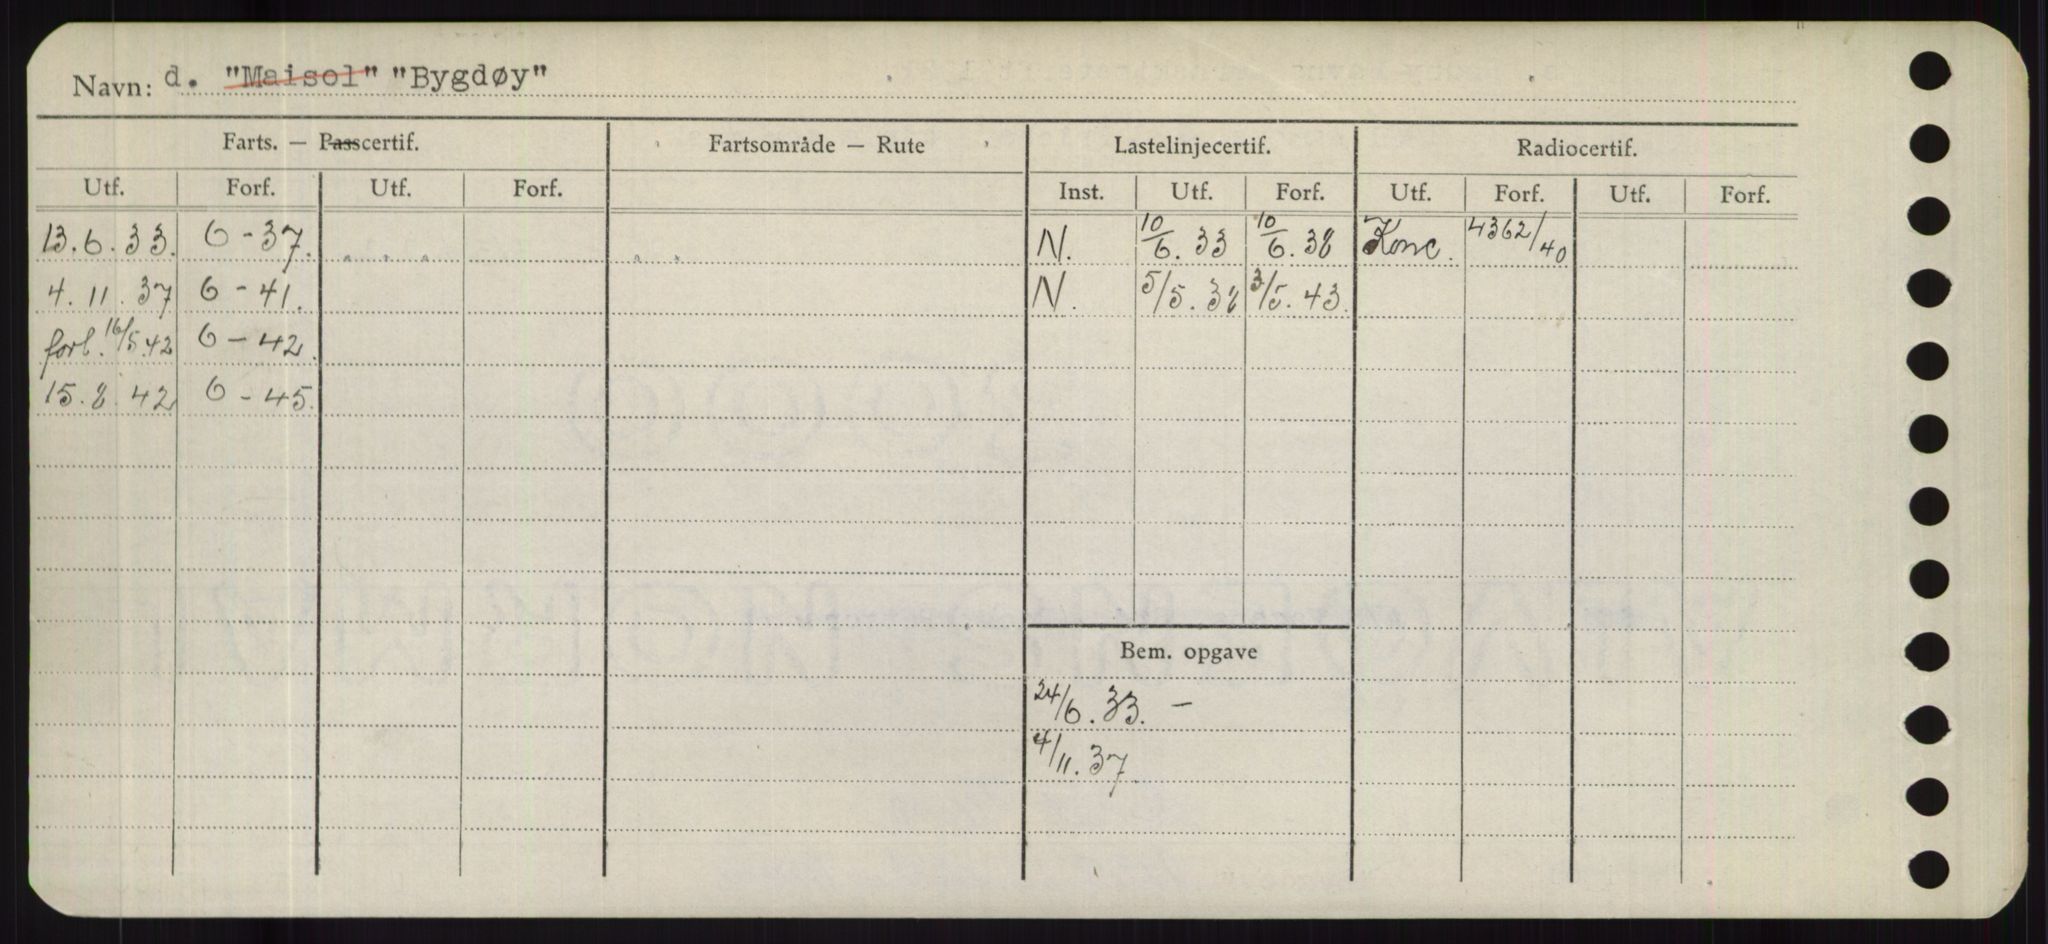 Navn: d. "Maisol" "Bygdøy"
Farts. — Passcertif. Fartsområde — Rute Lastelinjecertif. Radiocertif.
Utf. Forf. Utf. Forf. Inst. Utf. Forf. Utf. Forf. Utf. Forf.
13.6.33. 6-37. N. 10/6.33 10/6.38 Konc. 4362/40
4.11.37 6-41. N. 5/5.38 3/5.43.
forl. 16/5.42 6-42.
15.8.42 6-45.
Bem. opgave
24/6.33. —
4/11.37.